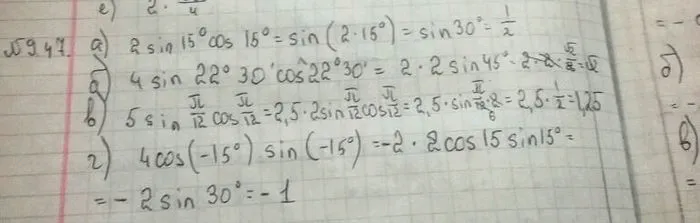 е) 2 ·
№9.47. а) 2 sin 15° cos 15° = sin (2·15°) = sin 30° = 1/2
б) 4 sin 22°30' cos 22°30' = 2 · 2 sin 45° = √2
в) 5 sin π/12 cos π/12 = 2,5 · 2 sin π/12 cos π/12 = 2,5 · sin π/6 = 2,5 · 1/2 = 1,25
г) 4 cos(-15°) sin(-15°) = -2 · 2 cos 15 sin 15° =
= - 2 sin 30° = - 1
б)
в)